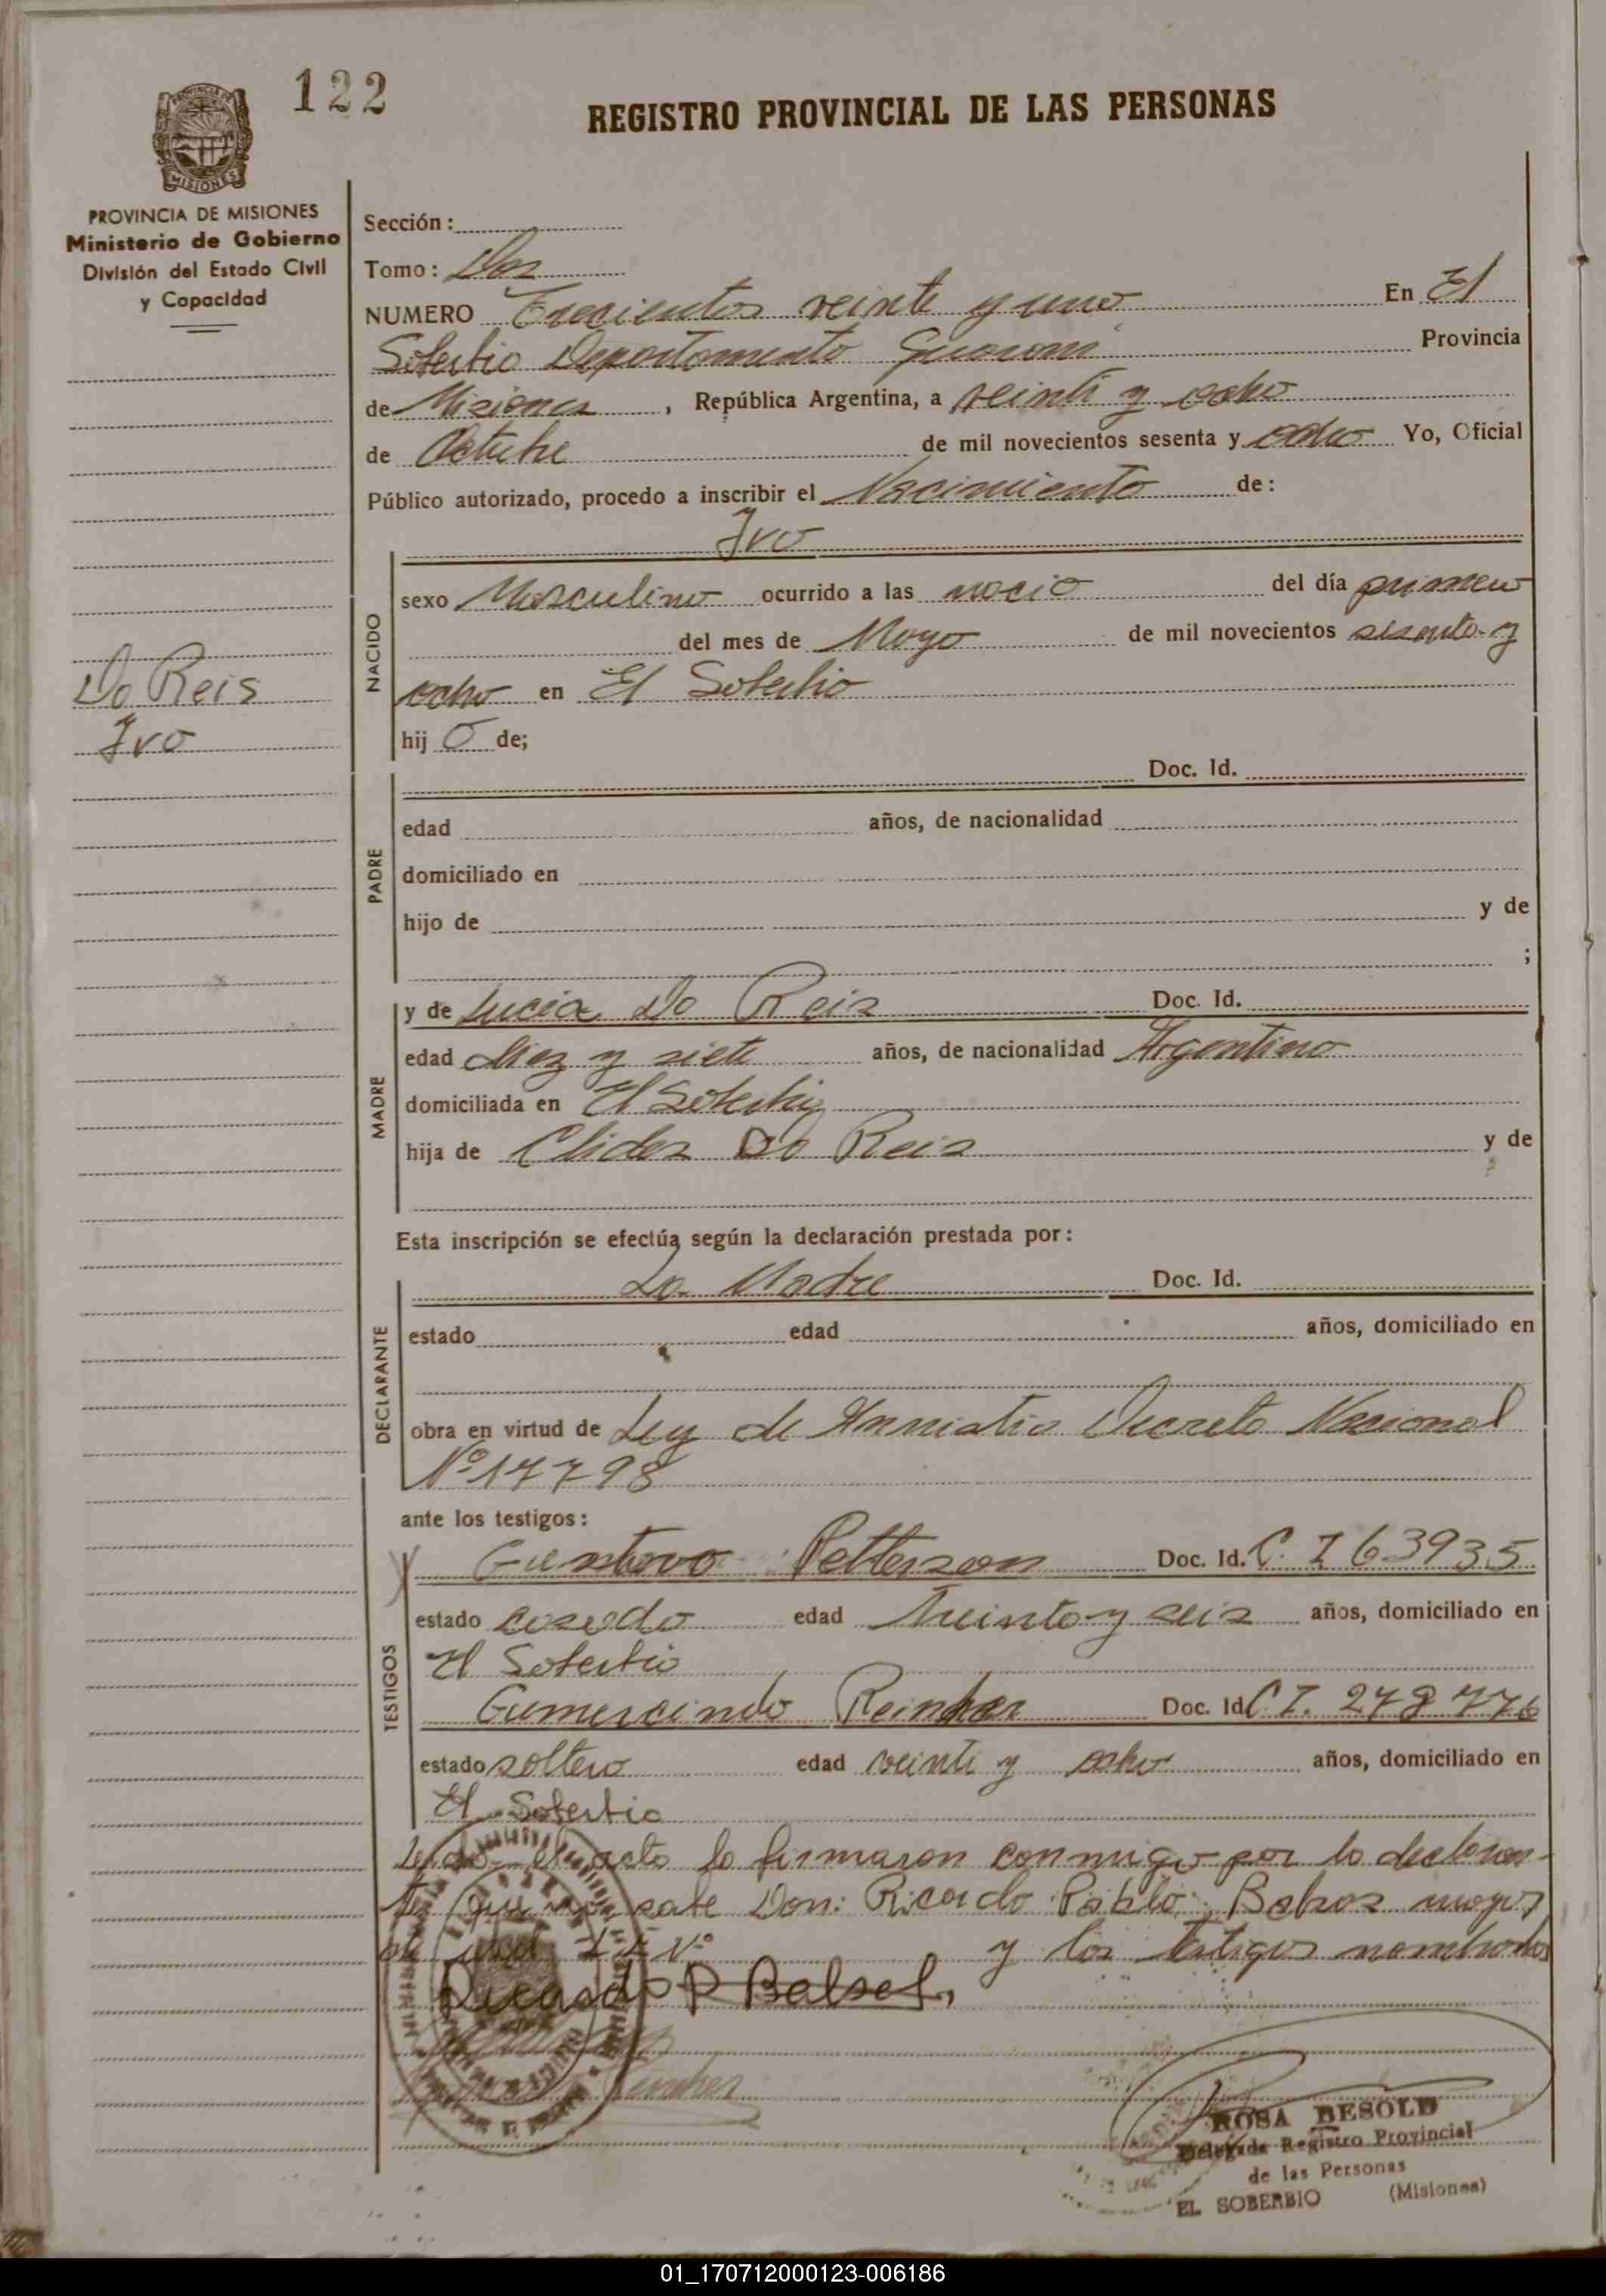 122
REGISTRO PROVINCIAL DE LAS PERSONAS
PROVINCIA DE MISIONES
MISIONES
PROVINCIA DE MISIONES
Ministerio de Gobierno
División del Estado Civil
y Capacidad
Sección:
Tomo: Dos
NUMERO Trecientos veinte y uno En El
Soberbio Departamento Guarani Provincia
de Misiones, República Argentina, a veinti y ocho
de Octubre de mil novecientos sesenta y ocho Yo, Oficial
Público autorizado, procedo a inscribir el Nacimiento de:
Ivo
NACIDO
sexo Masculino ocurrido a las nacio del día primero
del mes de Mayo de mil novecientos sesenta y
ocho en El Soberbio
hij o de;
Do Reis
Ivo
PADRE
Doc. Id.
edad años, de nacionalidad
domiciliado en
hijo de y de
;
MADRE
y de Lucia Do Reis Doc. Id.
edad diez y siete años, de nacionalidad Argentino
domiciliada en El Soberbio
hija de Do Reis y de
Esta inscripción se efectúa según la declaración prestada por:
DECLARANTE
La Madre Doc. Id.
estado edad años, domiciliado en
obra en virtud de Ley de Amnistia Decreto Nacional
Nº 17798
ante los testigos:
TESTIGOS
Gustavo Petterson Doc. Id. C. I 63935
estado casado edad treinta y seis años, domiciliado en
El Soberbio
Gumercindo Doc. Id C I. 278776
estado soltero edad veinti y ocho años, domiciliado en
El Soberbio
Leida el acta la firmaron conmigo por la declaran-
te que no sabe Don: Ricardo Pablo mayor
de edad y los testigos nombrados
Ricardo P
ROSA BESOLD
Delegada Registro Provincial
de las Personas
EL SOBERBIO (Misiones)
01_170712000123-006186